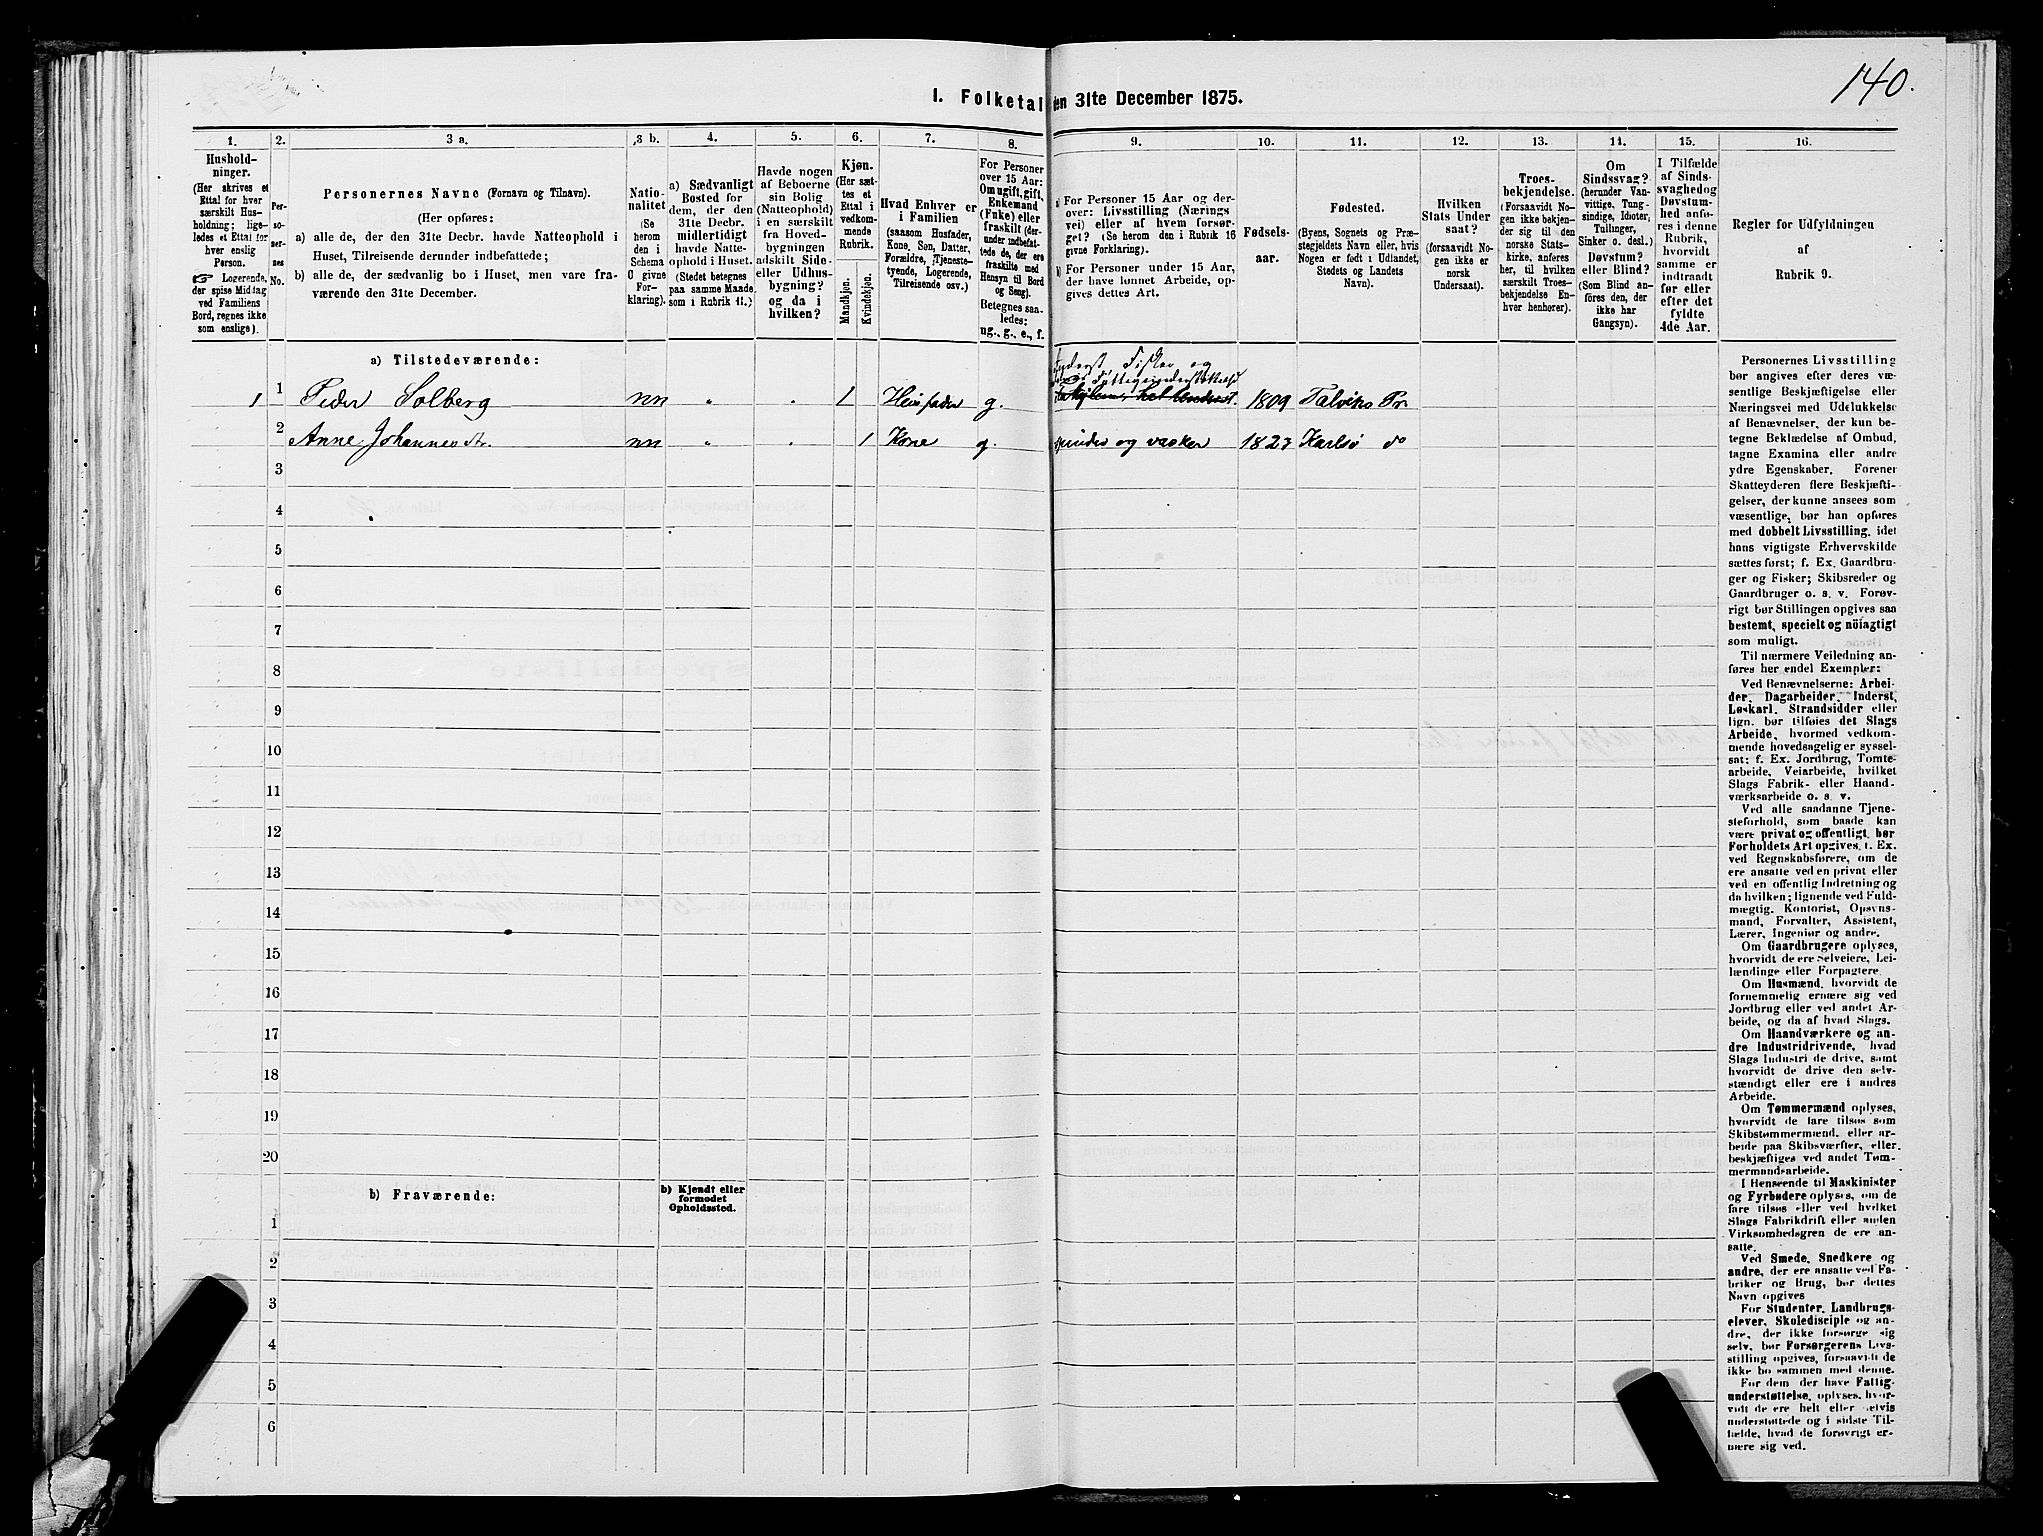 140.
I. Folketal den 31te December 1875.
1. 2. 3 a. 3 b. 4. 5. 6. 7. 8. 9. 10. 11. 12. 13. 14. 15. 16.
Hushold-
ninger.
(Her skrives et
Ettal for hver
særskilt Hus-
holdning; lige-
ledes et Ettal for
hver enslig
Person.
☞ Logerende,
der spise Middag
ved Familiens
Bord, regnes ikke
som enslige).
Per-
so-
ner-
nes
No.
Personernes Navne (Fornavn og Tilnavn).
(Her opføres:
a) alle de, der den 31te Decbr. havde Natteophold i
Huset, Tilreisende derunder indbefattede;
b) alle de, der sædvanlig bo i Huset, men vare fra-
værende den 31te December.
Natio-
nalitet
(Se
herom
den i
Schema
O givne
For-
klaring).
a) Sædvanligt
Bosted for
dem, der den
31te Decbr.
midlertidigt
havde Natte-
ophold i Huset.
(Stedet betegnes
paa samme Maade
som i Rubrik 11.)
Havde nogen
af Beboerne
sin Bolig
(Natteophold)
i en særskilt
fra Hoved-
bygningen
adskilt Side-
eller Udhus-
bygning?
og da i
hvilken?
Kjøn.
(Her sæt-
tes et
Ettal i
vedkom-
mende
Rubrik.
Mandkjøn.
Kvindekjøn.
Hvad Enhver er
i Familien
(saasom Husfader,
Kone, Søn, Datter,
Forældre, Tjeneste-
tyende, Logerende,
Tilreisende osv.)
For Personer
over 15 Aar:
Om ugift, gift,
Enkemand
(Enke) eller
fraskilt (der-
under indbefat-
tede de, der ere
fraskilte med
Hensyn til Bord
og Seng).
Betegnes saa-
ledes:
ug., g., e., f.
a) For Personer 15 Aar og der-
over: Livsstilling (Nærings
vei) eller af hvem forsør-
get? (Se herom den i Rubrik 16
givne Forklaring).
b) For Personer under 15 Aar,
der have lønnet Arbeide, op-
gives dettes Art.
Fødsels-
aar.
Fødested.
(Byens, Sognets og Præ-
stegjeldets Navn eller, hvis
Nogen er født i Udlandet,
Stedets og Landets
Navn).
Hvilken
Stats Under
saat?
(forsaavidt No-
gen ikke er
norsk
Undersaat).
Troes-
bekjendelse.
(Forsaavidt No-
gen ikke bekjen-
der sig til den
norske Stats-
kirke, anføres
her, til hvilken
særskilt Troes-
bekjendelse En-
hver henhører).
Om
Sindssvag?
(herunder Van-
vittige, Tung-
sindige, Idioter,
Tullinger,
Sinker o. desl.)
Døvstum?
eller Blind?
(Som Blind an-
føres den, der
ikke har
Gangsyn).
I Tilfælde
af Sinds-
svaghed og
Døvstum-
hed anfø-
res i denne
Rubrik,
hvorvidt
samme er
indtraadt
før eller
efter det
fyldte
4de Aar.
Regler for Udfyldningen
af
Rubrik 9.
a) Tilstedeværende:
Inderst Fisker og
Fattigunderstøttelse
1 1 Peder Solberg nn " . 1 Husfader g. 1809 Talviks Pr.
2 Anne Johannesdr. nn " . 1 Kone g. spinder og vasker 1823 Karlsø do
3
4
5
6
7
8
9
10
11
12
13
14
15
16
17
18
19
20
b) Fraværende:
b) Kjendt eller
formodet
Opholdssted.
1
2
3
4
5
6
Personernes Livsstilling
bør angives efter deres væ-
sentlige Beskjæftigelse eller
Næringsvei med Udelukkelse
af Benævnelser, der kun be-
tegne Beklædelse af Ombud,
tagne Examina eller andre
ydre Egenskaber. Forener
Skatteyderen flere Beskjæfti-
gelser, der kunne ansees som
væsentlige, bør han opføres
med dobbelt Livsstilling, idet
hans vigtigste Erhvervskilde
sættes først; f. Ex. Gaardbru-
ger og Fisker; Skibsreder og
Gaardbruger o. s. v. Forøv-
rigt bør Stillingen opgives saa
bestemt, specielt og nöiagtigt
som muligt.
Til nærmere Veiledning an-
føres her endel Exempler:
Ved Benævnelserne: Arbei-
der, Dagarbeider, Inderst,
Løskarl, Strandsidder eller
lign. bør tilføies det Slags
Arbeide, hvormed vedkom-
mende hovedsagelig er syssel-
sat; f. Ex. Jordbrug, Tomte-
arbeide, Veiarbeide, hvilket
Slags Fabrik- eller Haand-
værksarbeide o. s. v.
Ved alle saadanne Tjene-
steforhold, som baade kan
være privat og offentligt, bør
Forholdets Art opgives, f. Ex.
ved Regnskabsførere, om de
ere ansatte ved en privat eller
ved en offentlig Indretning og
da hvilken; lignende ved Fuld-
mægtig, Kontorist, Opsyns-
mand, Forvalter, Assistent,
Lærer, Ingeniør og andre.
Om Gaardbrugere oplyses,
hvorvidt de ere Selveiere, Lei-
lændinge eller Forpagtere.
Om Husmænd, hvorvidt de
fornemmelig ernære sig ved
Jordbrug eller ved andet Ar-
beide, og da af hvad Slags.
Om Haandværkere og an-
dre Industridrivende, hvad
Slags Industri de drive, samt
hvorvidt de drive den selv-
stændigt eller ere i andres
Arbeide.
Om Tømmermænd oplyses,
hvorvidt de fare tilsøs som
Skibstømmermænd, eller ar-
beide paa Skibsværfter, eller
beskjæftiges ved andet Tøm-
mermandsarbeide.
I Henseende til Maskinister
og Fyrbødere oplyses, om de
fare tilsøs eller ved hvilket
Slags Fabrikdrift eller anden
Virksomhedsgren de ere an-
satte.
Ved Smede, Snedkere og
andre, der ere ansatte ved Fa-
briker og Brug, bør dettes
Navn opgives
For Studenter, Landbrugs-
elever, Skoledisciple og an-
dre, der ikke forsørge sig
selv, bør Forsørgerens Livs-
stilling opgives, forsaavidt de
ikke bo sammen med denne.
For dem der have Fattig-
understøttelse, oplyses, hvor-
vidt de ere helt eller delvis
understøttede og i sidste Til-
fælde, hvad de forøvrigt er-
nære sig ved.